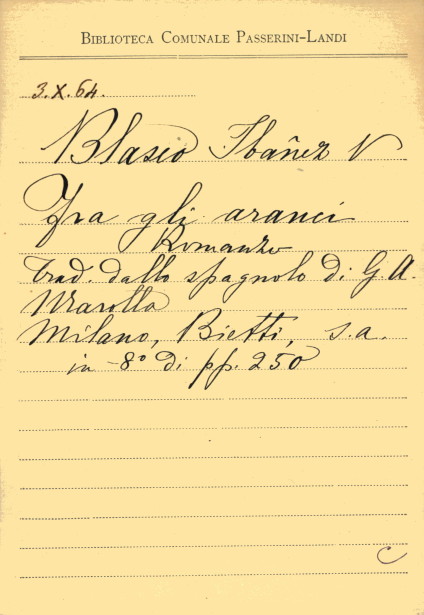 BIBLIOTECA COMUNALE PASSERINI-LANDI
3.X.64.
Blasco Ibañez V
Fra gli aranci
Romanzo
trad. dallo spagnolo di G A.
Marolla
Milano, Bietti, s.a.
in -8° di pp. 250
C